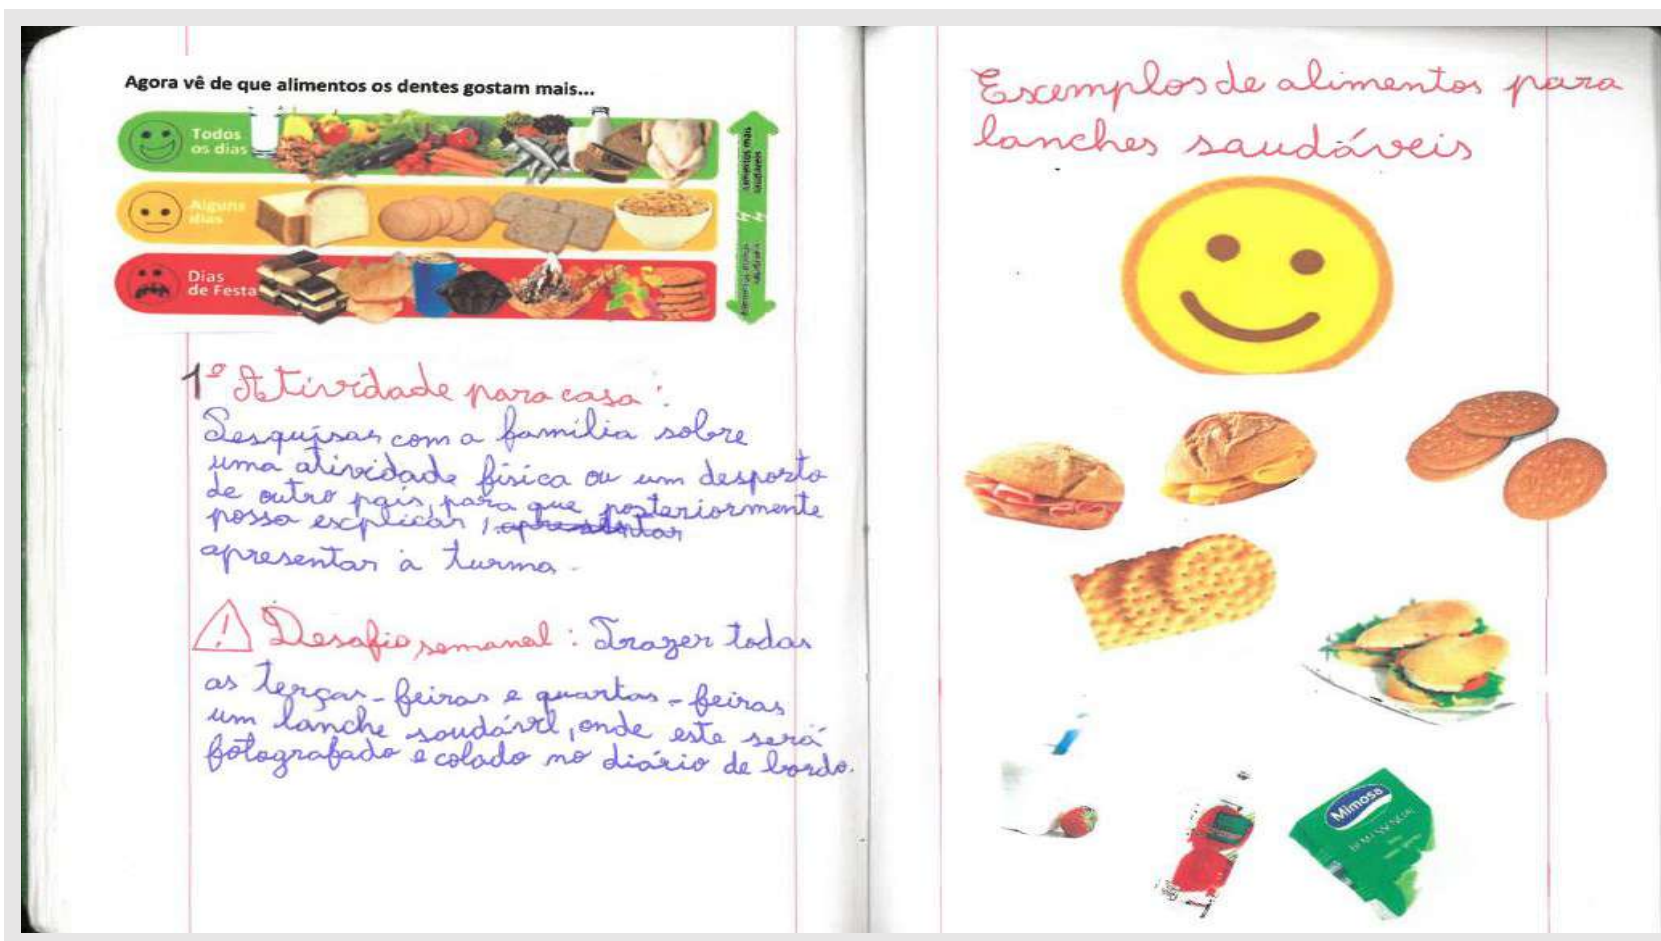 Agora vê de que alimentos os dentes gostam mais...
Todos
os dias
Alguns
dias
Dias
de Festa
1º Atividade para casa:
Pesquisar com a família sobre
uma atividade física ou um desporto
de outro país, para que posteriormente
possa explicar, apresentar
apresentar à turma.
Desafio semanal: Trazer todas
as terças-feiras e quartas-feiras
um lanche saudável, onde este será
fotografado e colado no diário de bordo.
Exemplos de alimentos para
lanches saudáveis
Mimosa